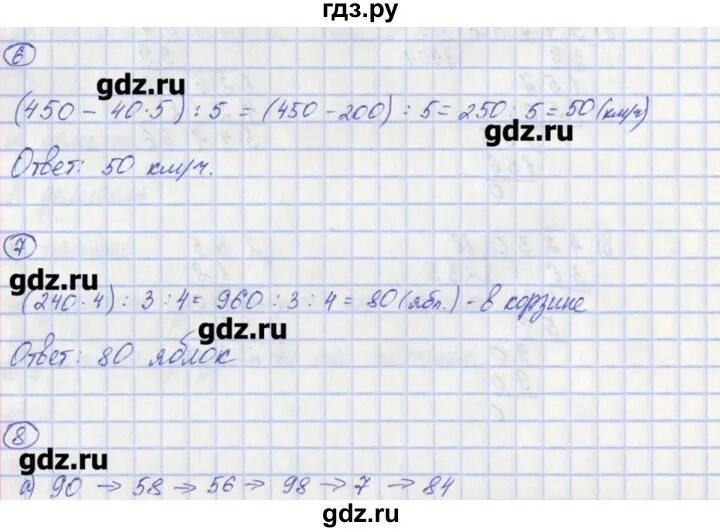 гдз.ру
6
gdz.ru
(450 - 40·5) : 5 = (450 - 200) : 5 = 250 : 5 = 50 (км/ч)
gdz.ru
Ответ: 50 км/ч.
7
gdz.ru
(240·4) : 3 : 4 = 960 : 3 : 4 = 80 (ябл.) - в корзине
gdz.ru
Ответ: 80 яблок
8
gdz.ru
а) 90 → 58 → 56 → 98 → 7 → 84
gdz.ru